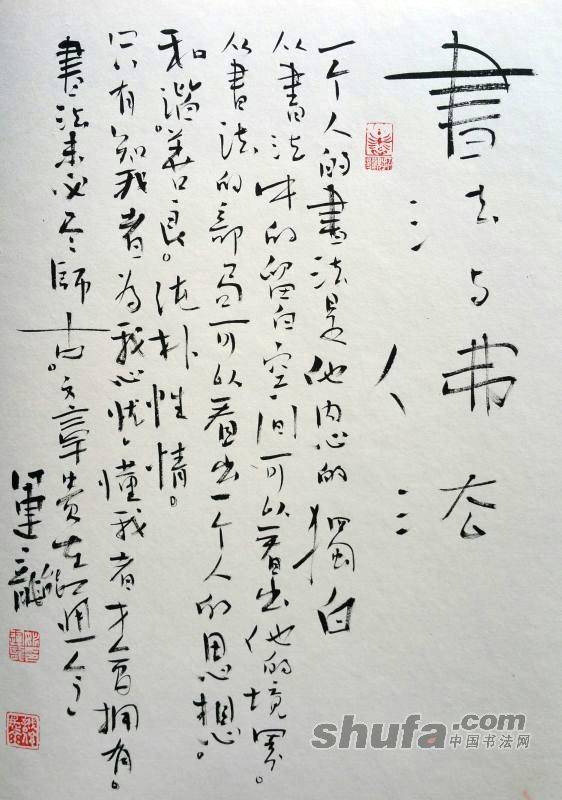 書法与佛法
一个人的書法是他内心的獨白
从書法中的留白空间可以看出他的境界。
从書法的部局可以看出一个人的思想。
和谐。善良。纯朴性情。
只有知我者为我心忧、懂我者才會拥有。
書法未必全師古。文章贵在能通今
shufa.com
中国书法网